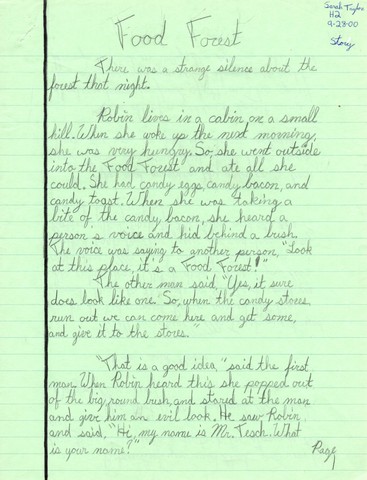 Sarah Taylor
H2
9-28-00
Story
Food Forest
There was a strange silence about the
forest that night.
Robin lives in a cabin on a small
hill. When she woke up the next morning,
she was very hungry. So, she went outside
into the Food Forest and ate all she
could. She had candy eggs, candy bacon, and
candy toast. When she was taking a
bite of the candy bacon, she heard a
person's voice and hid behind a bush.
The voice was saying to another person, "Look
at this place, it's a Food Forest!"
The other man said, "Yes, it sure
does look like one. So, when the candy stores
run out we can come here and get some,
and give it to the stores."
"That is a good idea," said the first
man. When Robin heard this she popped out
of the big round bush, and stared at the man
and give him an evil look. He saw Robin,
and said, "Hi, my name is Mr. Tesch. What
is your name?"
Page